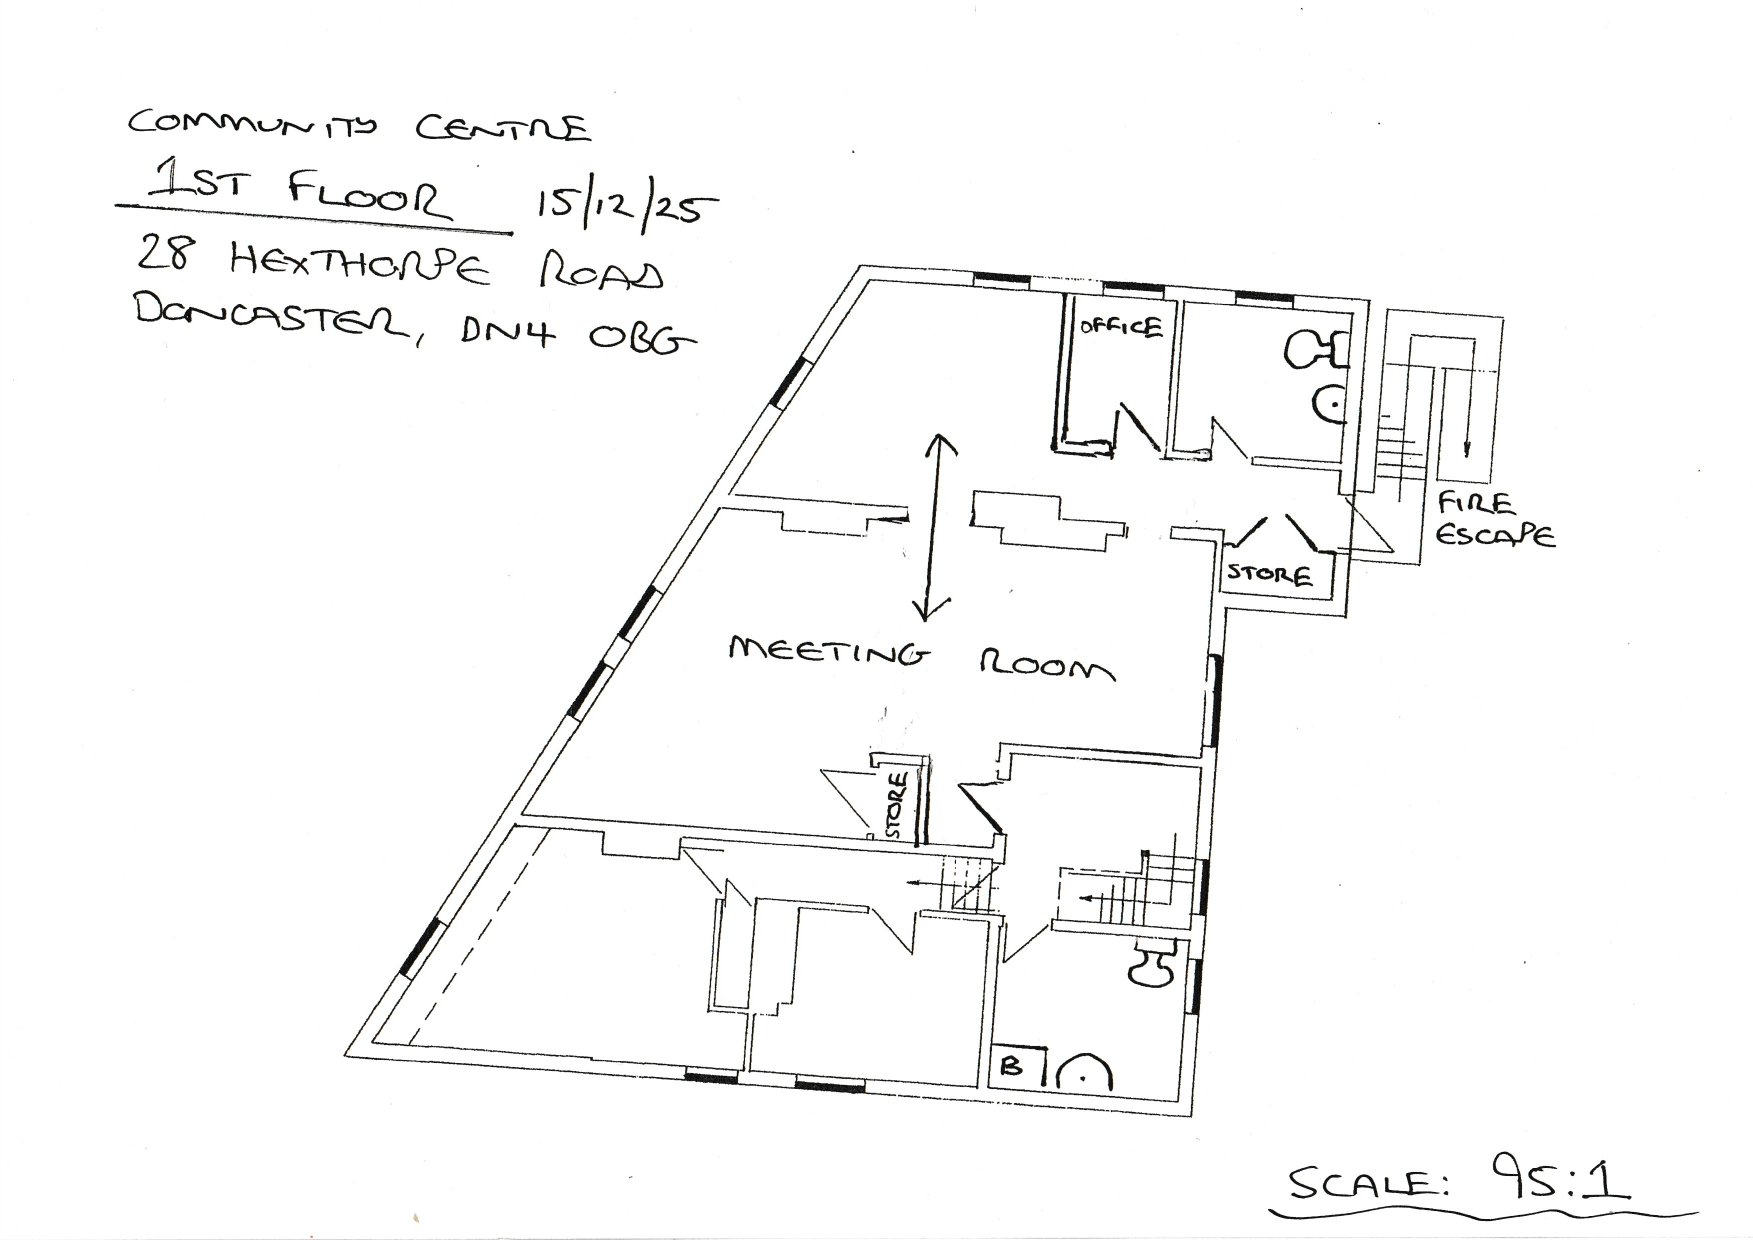 COMMUNITY CENTRE
1ST FLOOR 15/12/25
28 HEXTHORPE ROAD
DONCASTER, DN4 0BG
OFFICE
FIRE
ESCAPE
STORE
MEETING ROOM
STORE
B
SCALE: 95:1